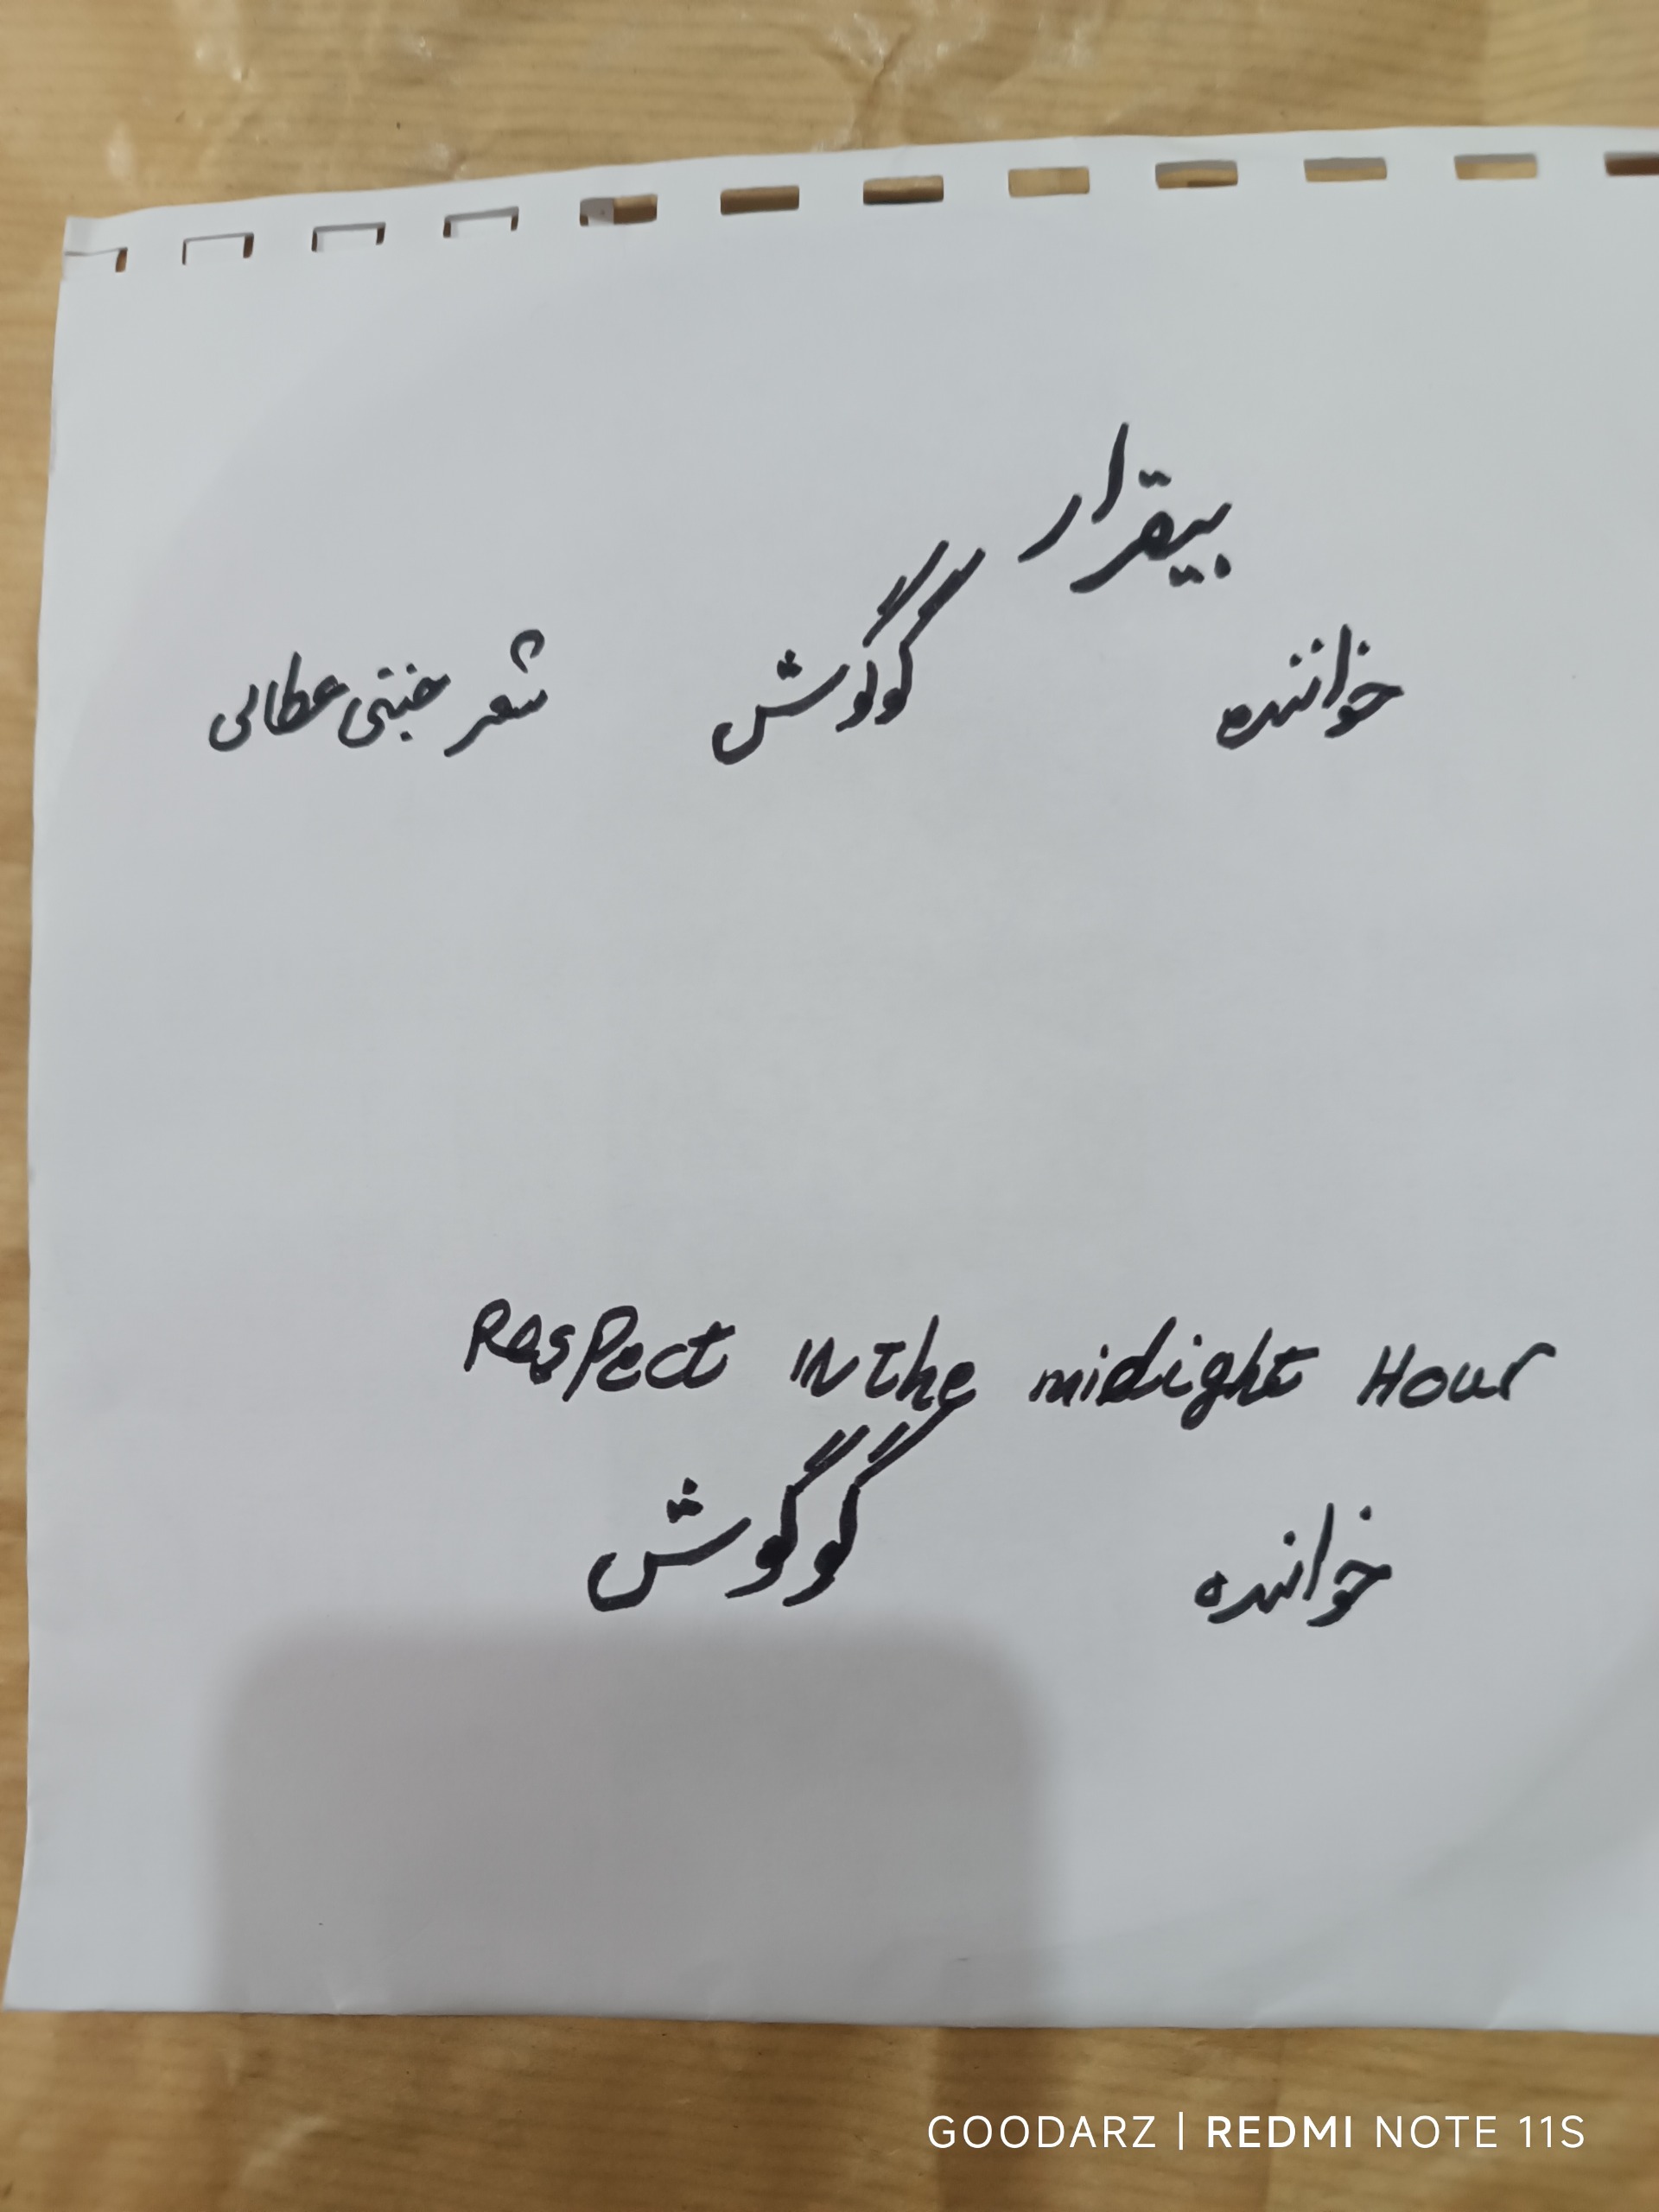 بیقرار
خواننده گوگوش شعر جنتی عطالی
Respect IN the midight Hour
خواننده گوگوش
GOODARZ | REDMI NOTE 11S